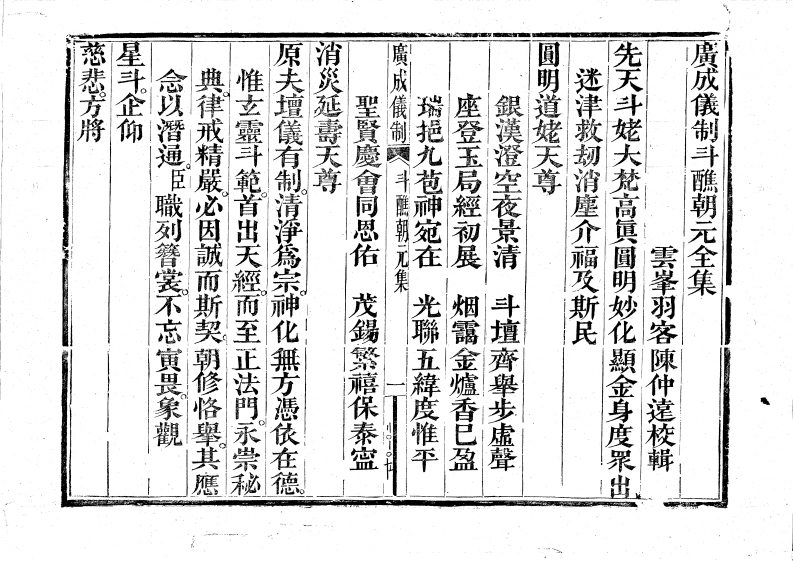 廣成儀制斗醮朝元全集
雲峯羽客陳仲遠校輯
先天斗姥大梵高眞圓明妙化顯金身度眾出
迷津救刼消塵介福及斯民
圓明道姥天尊
銀漢澄空夜景清　斗壇齊舉步虛聲
座登玉局經初展　烟靄金爐香巳盈
瑞挹九苞神宛在　光聯五緯度惟平
廣成儀制　斗醮朝元集　一
聖賢慶會同恩佑　茂錫繁禧保泰寍
消災延壽天尊
原夫壇儀有制。清淨爲宗。神化無方。憑依在德。
惟玄靈斗範。首出天經。而至正法門。永崇秘
典。律戒精嚴。必因誠而斯契。朝修恪舉。其應
念以潛通。臣職列簪裳。不忘寅畏。象觀
星斗。企仰
慈悲。方將